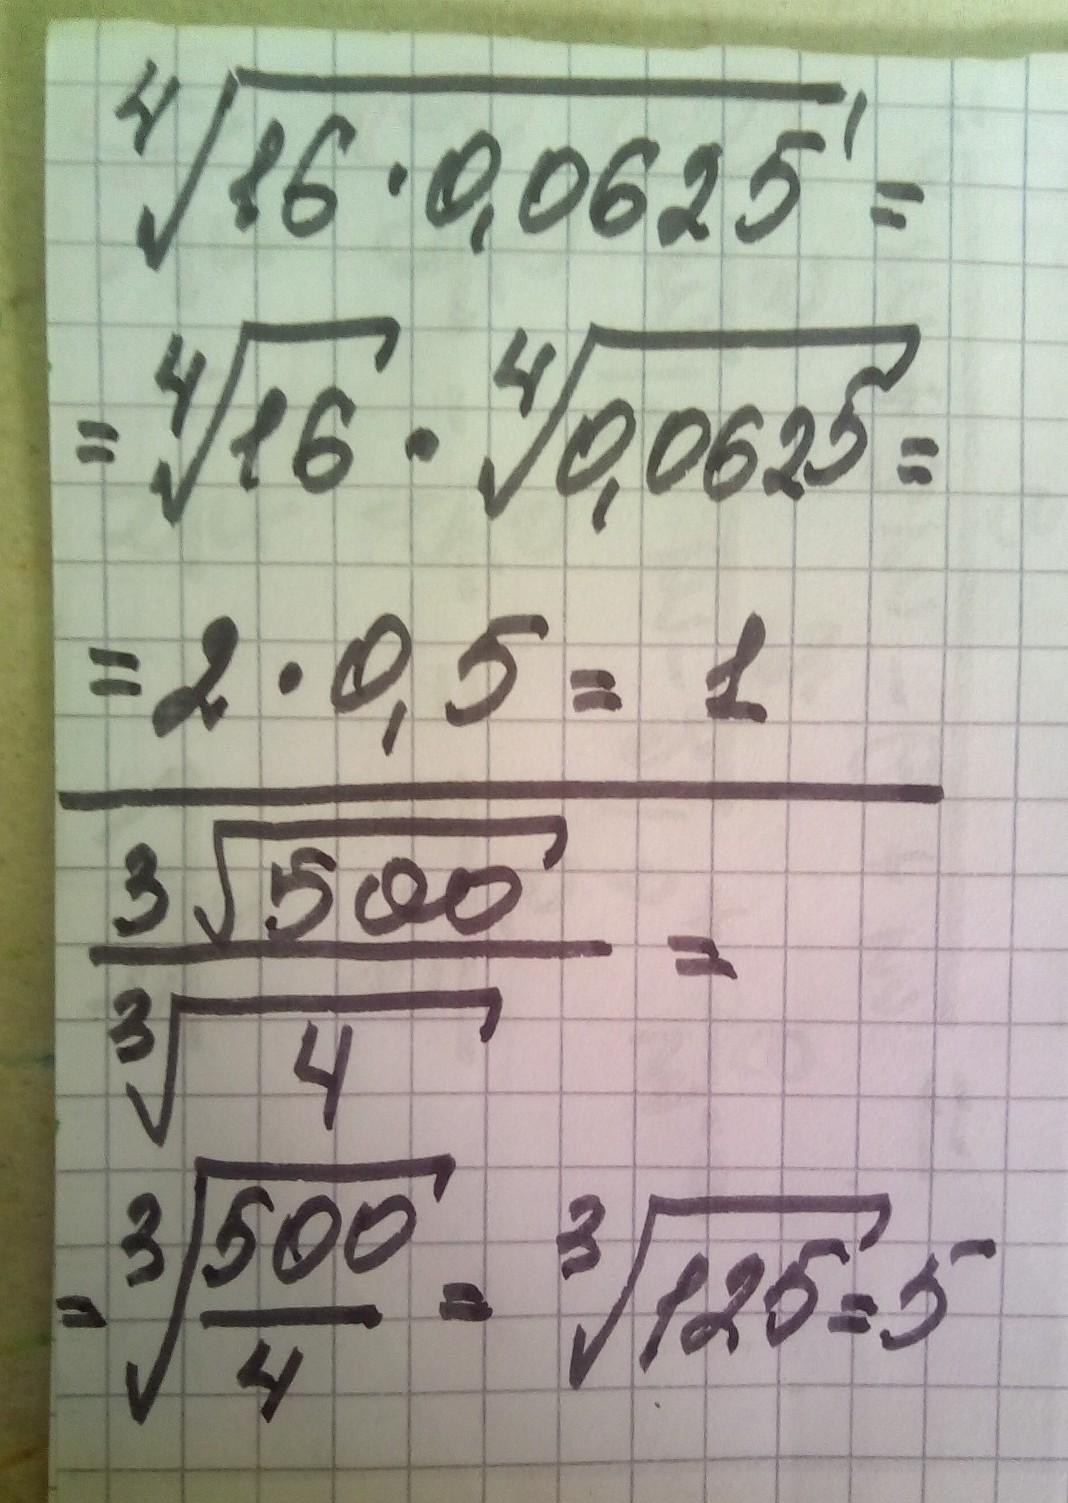 ⁴√16 · 0,0625 =
= ⁴√16 · ⁴√0,0625 =
= 2 · 0,5 = 1
³√500
³√4
=
= ³√500/4 = ³√125 = 5